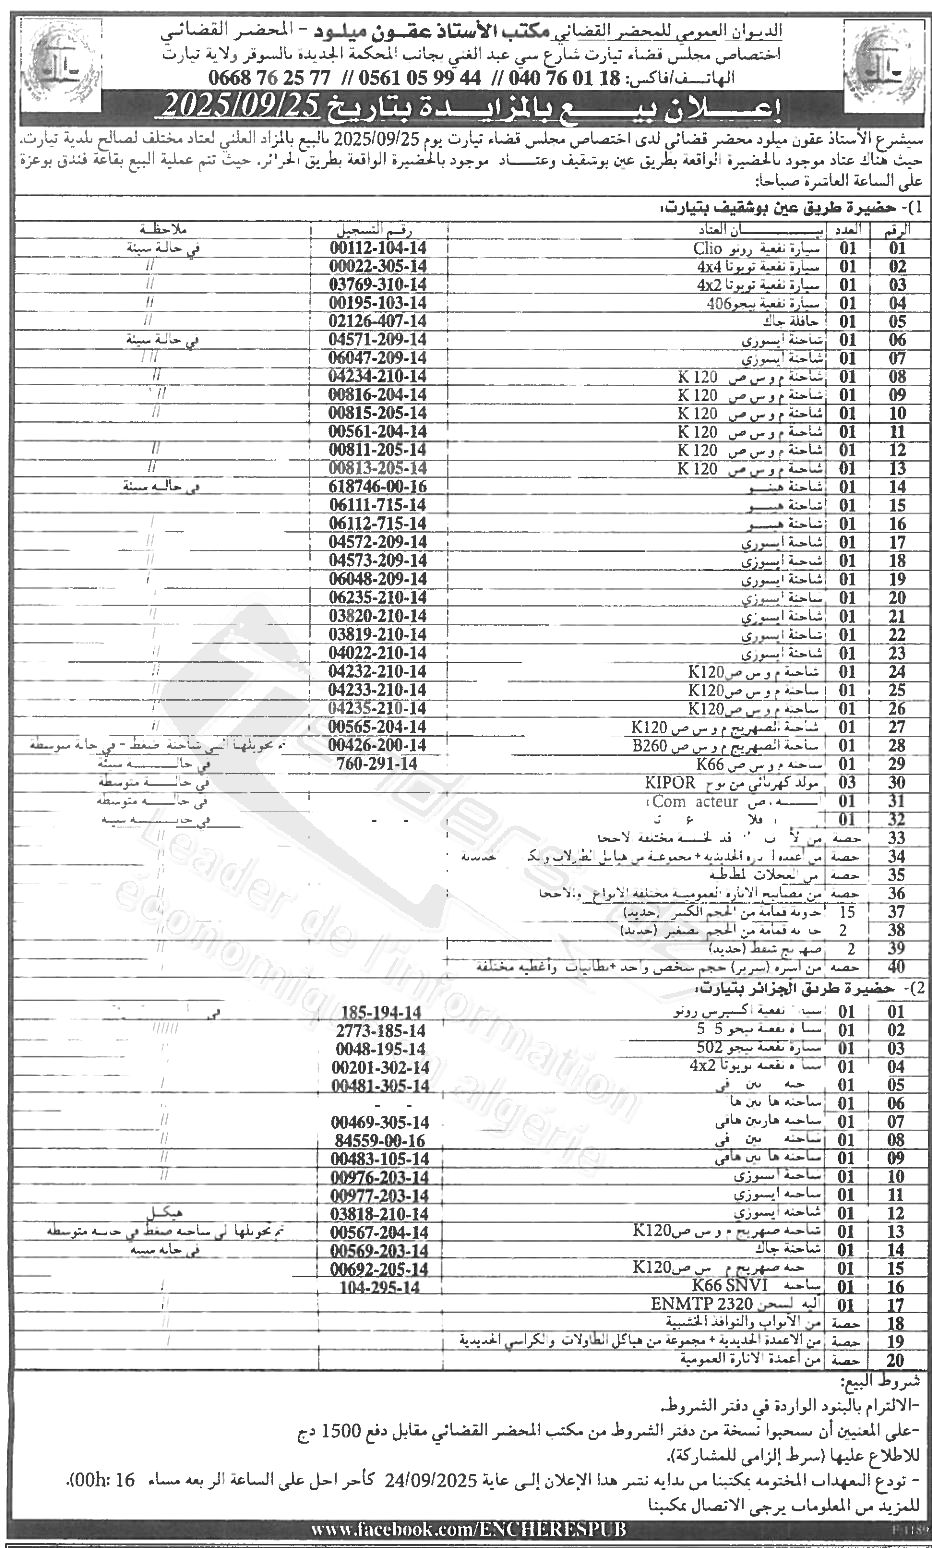 الديوان العمومي للمحضر القضائي مكتب الأستاذ عقون ميلود - المحضر القضائي
اختصاص مجلس قضاء تيارت شارع سي عبد الغني بجانب المحكمة الجديدة بالسوقر ولاية تيارت
الهاتف/فاكس: 18 01 76 040 // 44 99 05 0561 // 77 25 76 0668
إعلان بيع بالمزايدة بتاريخ 2025/09/25
سيشرع الأستاذ عقون ميلود محضر قضائي لدى اختصاص مجلس قضاء تيارت يوم 2025/09/25 بالبيع بالمزاد العلني لعتاد مختلف لصالح بلدية تيارت،
حيث هناك عتاد موجود بالحضيرة الواقعة بطريق عين بوشقيف وعتاد موجود بالحضيرة الواقعة بطريق الجزائر. حيث تتم عملية البيع بقاعة فندق بوعزة
على الساعة العاشرة صباحا:
1)- حضيرة طريق عين بوشقيف بتيارت:
الرقم العدد بيان العتاد رقم التسجيل ملاحظة
01 01 سيارة نفعية رونو Clio 00112-104-14 في حالة سيئة
02 01 سيارة نفعية تويوتا 4x4 00022-305-14 //
03 01 سيارة نفعية تويوتا 4x2 03769-310-14 //
04 01 سيارة نفعية بيجو 406 00195-103-14 //
05 01 حافلة جاك 02126-407-14 //
06 01 شاحنة ايسوزي 04571-209-14 في حالة سيئة
07 01 شاحنة ايسوزي 06047-209-14 //
08 01 شاحنة م و س ص K 120 04234-210-14 //
09 01 شاحنة م و س ص K 120 00816-204-14 //
10 01 شاحنة م و س ص K 120 00815-205-14 //
11 01 شاحنة م و س ص K 120 00561-204-14
12 01 شاحنة م و س ص K 120 00811-205-14 //
13 01 شاحنة م و س ص K 120 00813-205-14 //
14 01 شاحنة هينو 618746-00-16 في حالة سيئة
15 01 شاحنة هينو 06111-715-14
16 01 شاحنة هينو 06112-715-14
17 01 شاحنة ايسوزي 04572-209-14
18 01 شاحنة ايسوزي 04573-209-14
19 01 شاحنة ايسوزي 06048-209-14
20 01 شاحنة ايسوزي 06235-210-14
21 01 شاحنة ايسوزي 03820-210-14
22 01 شاحنة ايسوزي 03819-210-14
23 01 شاحنة ايسوزي 04022-210-14
24 01 شاحنة م و س ص K120 04232-210-14
25 01 شاحنة م و س ص K120 04233-210-14
26 01 شاحنة م و س ص K120 04235-210-14
27 01 شاحنة الصهريج م و س ص K120 00565-204-14 //
28 01 شاحنة الصهريج م و س ص B260 00426-200-14 تم تحويلها الى شاحنة ضغط - في حالة متوسطة
29 01 شاحنة م و س ص K66 760-291-14 في حالة سيئة
30 03 مولد كهربائي من نوع KIPOR في حالة متوسطة
31 01 في حالة متوسطة
32 01 - - في حالة سيئة
33 حصة
34 حصة من أعمدة الحديدية + مجموعة من هياكل الطاولات
35 حصة من العجلات المطاطية
36 حصة من مصابيح الانارة العمومية مختلفة الانواع والاحجام
37 15 حاوية قمامة من الحجم الكبير (حديد)
38 2 حاوية قمامة من الحجم الصغير (حديد)
39 2 صهريج شفط (حديد)
40 حصة من أسرة (سرير) حجم شخص واحد + بطانيات وأغطية مختلفة
2)- حضيرة طريق الجزائر بتيارت:
01 01 سيارة نفعية اكسبرس رونو 185-194-14 في
02 01 سيارة نفعية بيجو 2773-185-14 //////
03 01 سيارة نفعية بيجو 502 0048-195-14
04 01 سيارة نفعية تويوتا 4x2 00201-302-14
05 01 00481-305-14
06 01 شاحنة - -
07 01 شاحنة هاربين هافي 00469-305-14
08 01 شاحنة 84559-00-16 //
09 01 شاحنة هاربين هافي 00483-105-14
10 01 شاحنة ايسوزي 00976-203-14 //
11 01 شاحنة ايسوزي 00977-203-14
12 01 شاحنة ايسوزي 03818-210-14 هيكل
13 01 شاحنة صهريج م و س ص K120 00567-204-14 تم تحويلها الى شاحنة ضغط في حالة متوسطة
14 01 شاحنة جاك 00569-203-14 في حالة سيئة
15 01 صهريج م س ص K120 00692-205-14 //
16 01 شاحنة K66 SNVI 104-295-14
17 01 آلية لشحن ENMTP 2320
18 حصة من الأبواب والنوافذ الخشبية
19 حصة من الاعمدة الحديدية + مجموعة من هياكل الطاولات والكراسي الحديدية
20 حصة من أعمدة الانارة العمومية
شروط البيع:
-الالتزام بالبنود الواردة في دفتر الشروط.
-على المعنيين أن يسحبوا نسخة من دفتر الشروط من مكتب المحضر القضائي مقابل دفع 1500 دج
للاطلاع عليها (شرط إلزامي للمشاركة).
- تودع التعهدات المختومة بمكتبنا من بداية نشر هذا الإعلان إلى غاية 24/09/2025 كآخر اجل على الساعة الرابعة مساء 16 :00h).
للمزيد من المعلومات يرجى الاتصال بمكتبنا
www.facebook.com/ENCHERESPUB
F 1189
Leader de l'information
économique en algérie